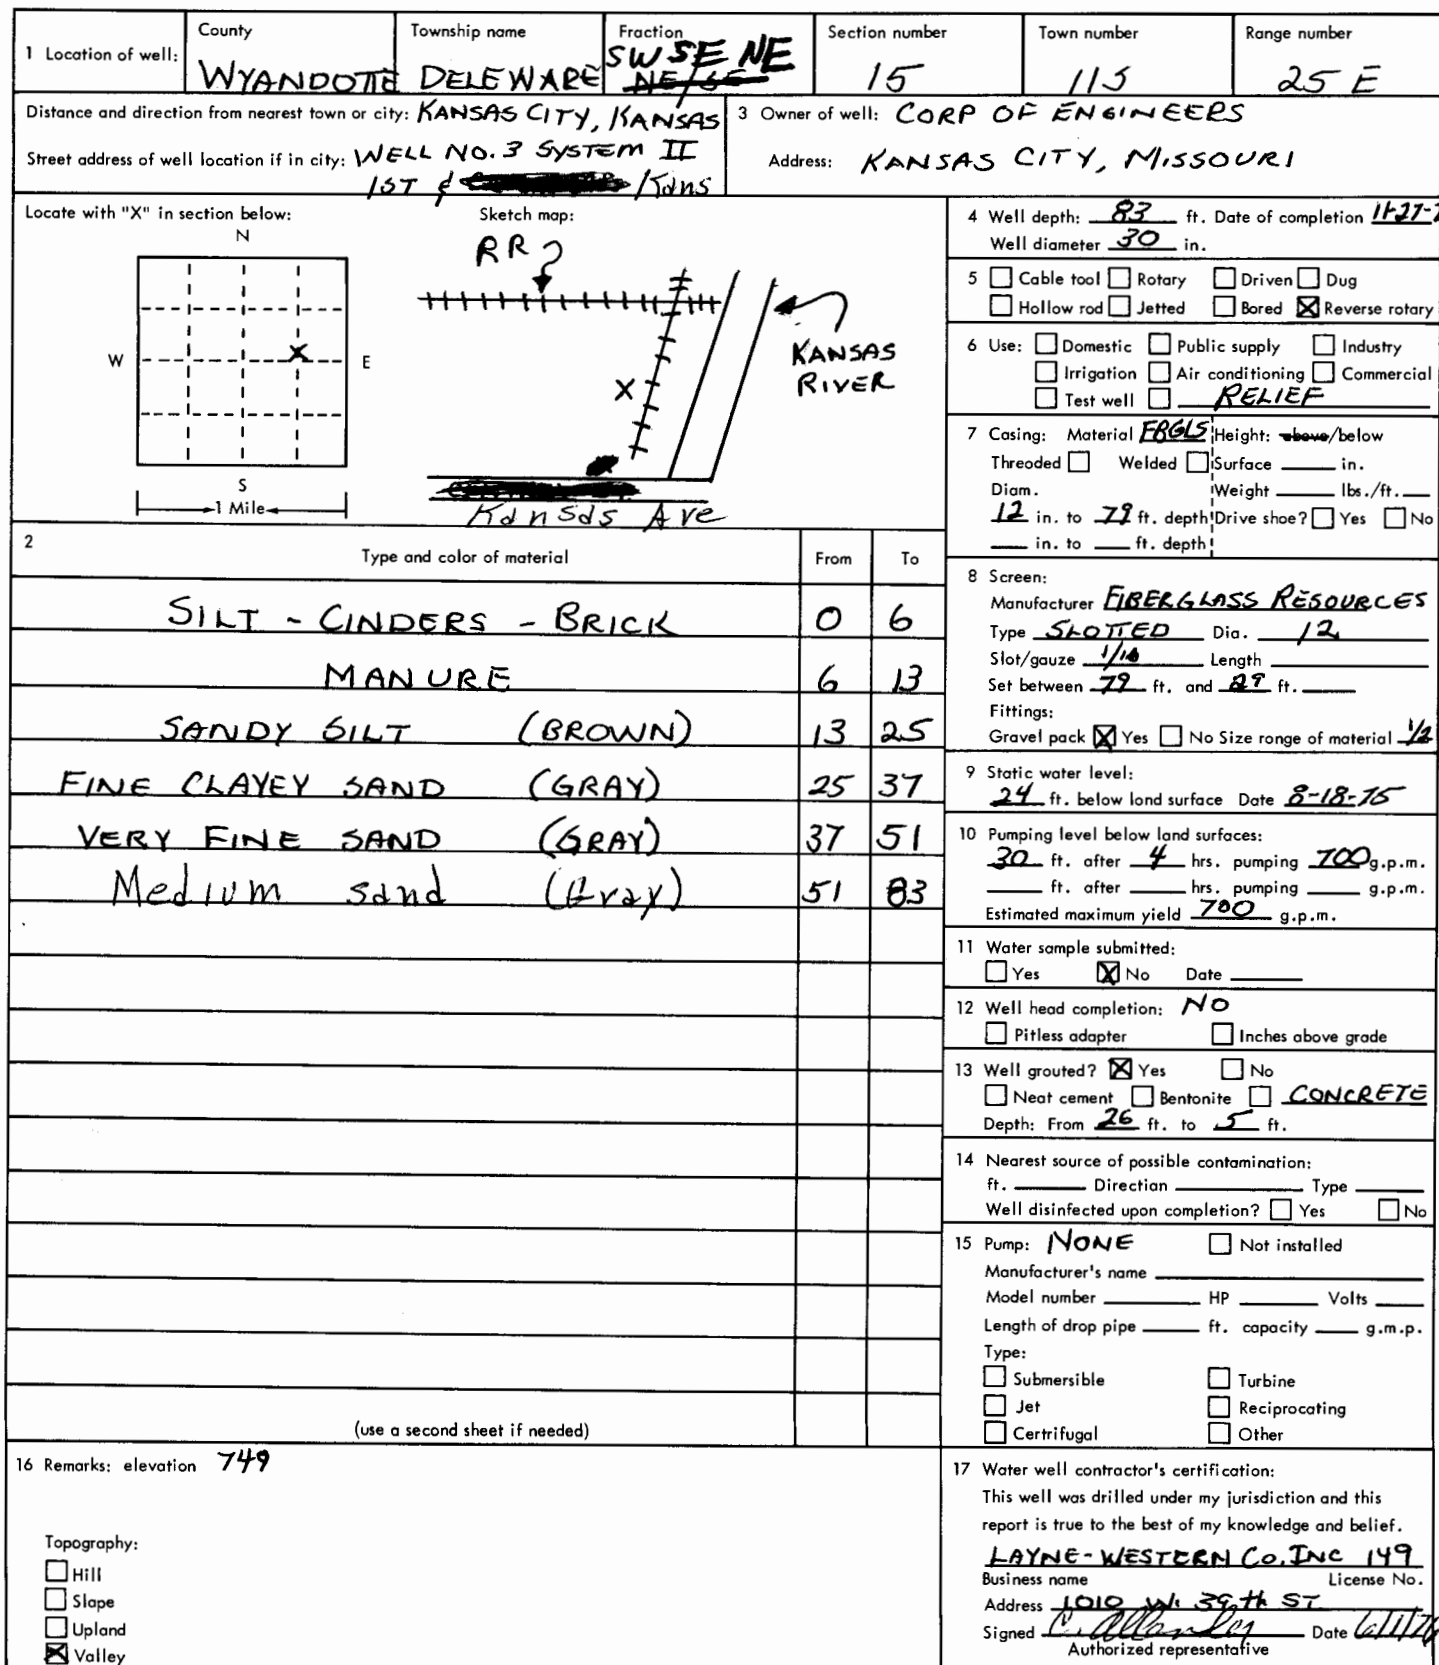 1 Location of well:
County
WYANDOTTE
Township name
DELEWARE
Fraction
SW SE NE
NE/SE
Section number
15
Town number
11S
Range number
25 E
Distance and direction from nearest town or city: KANSAS CITY, KANSAS
Street address of well location if in city: WELL NO. 3 SYSTEM II
1ST & / Kans
3 Owner of well: CORP OF ENGINEERS
Address: KANSAS CITY, MISSOURI
Locate with "X" in section below:
N
W
X
E
S
1 Mile
Sketch map:
RR
X
KANSAS
RIVER
Kansas Ave
2
Type and color of material From To
SILT - CINDERS - BRICK 0 6
MANURE 6 13
SANDY SILT (BROWN) 13 25
FINE CLAYEY SAND (GRAY) 25 37
VERY FINE SAND (GRAY) 37 51
Medium sand (Gray) 51 83
(use a second sheet if needed)
4 Well depth: 83 ft. Date of completion 11-27-7
Well diameter 30 in.
5 Cable tool Rotary Driven Dug
Hollow rod Jetted Bored X Reverse rotary
6 Use: Domestic Public supply Industry
Irrigation Air conditioning Commercial
Test well RELIEF
7 Casing: Material FBGLS Height: above/below
Threoded Welded Surface in.
Diam. Weight lbs./ft.
12 in. to 79 ft. depth Drive shoe? Yes No
in. to ft. depth
8 Screen:
Manufacturer FIBERGLASS RESOURCES
Type SLOTTED Dia. 12
Slot/gauze Length
Set between 79 ft. and 29 ft.
Fittings:
Gravel pack X Yes No Size range of material 1/2
9 Static water level:
24 ft. below lond surface Date 8-18-75
10 Pumping level below land surfaces:
30 ft. after 4 hrs. pumping 700 g.p.m.
ft. after hrs. pumping g.p.m.
Estimated maximum yield 700 g.p.m.
11 Water sample submitted:
Yes X No Date
12 Well head completion: NO
Pitless adapter Inches above grade
13 Well grouted? X Yes No
Neat cement Bentonite CONCRETE
Depth: From 26 ft. to 5 ft.
14 Nearest source of possible contamination:
ft. Direction Type
Well disinfected upon completion? Yes No
15 Pump: NONE Not installed
Manufacturer's name
Model number HP Volts
Length of drop pipe ft. capacity g.m.p.
Type:
Submersible Turbine
Jet Reciprocating
Certrifugal Other
16 Remarks: elevation 749
Topography:
Hill
Slape
Upland
X Valley
17 Water well contractor's certification:
This well was drilled under my jurisdiction and this
report is true to the best of my knowledge and belief.
LAYNE-WESTERN CO. INC 149
Business name License No.
Address 1010 W. 39th ST
Signed Date 6/1/76
Authorized representative